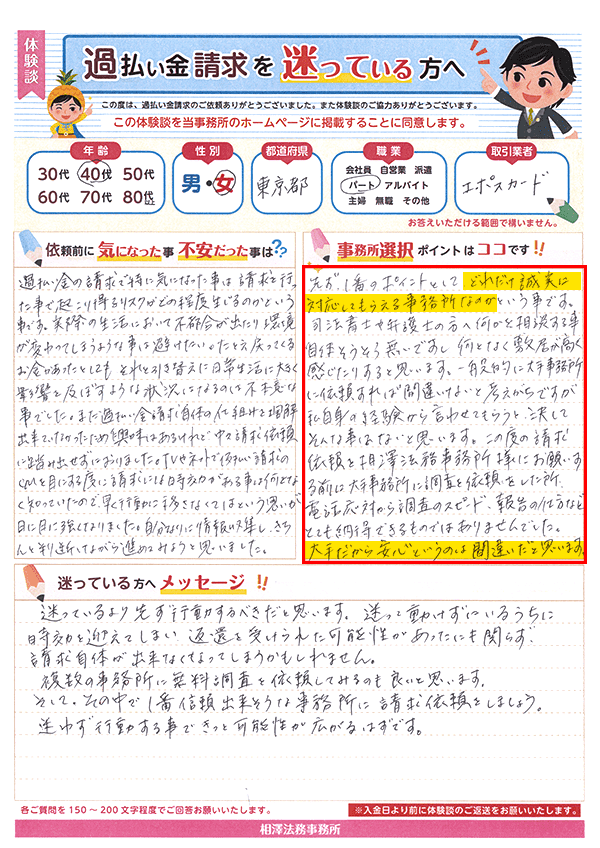 体験談
過払い金請求を迷っている方へ
この度は、過払い金請求のご依頼ありがとうございました。また体験談のご協力ありがとうございます。
この体験談を当事務所のホームページに掲載することに同意します。
年齢
30代 40代 50代
60代 70代 80代
性別
男・女
都道府県
東京都
職業
会社員 自営業 派遣
パート アルバイト
主婦 無職 その他
取引業者
エポスカード
お答えいただける範囲で構いません。
依頼前に気になった事 不安だった事は??
過払い金の請求で特に気になった事は請求を行
った事で起こり得るリスクがどの程度生じるのかという
事です。実際の生活において不都合が出たり、環境
が変わってしまうような事は避けたい。たとえ戻ってくる
お金があったとしても それと引き替えに日常生活に大きく
影響を及ぼすような状況になるのは不本意な
事でした。また過払い金請求自体の仕組を理解
出来ていなかったため興味はあるけれど中々請求依頼
に踏み出せずにおりました。TVやネットで過払い請求の
CMを目にする度に請求には時効がある事は何となく
知っていたので、早く行動に移さなくてはという思いが
日に日に強くなりました。自分なりに情報収集し、きち
んと判断しながら進めてみようと思いました。
事務所選択ポイントはココです!!
先ず、1番のポイントとしてどれだけ誠実に
対応してもらえる事務所なのかという事です。
司法書士や弁護士の方へ何かを相談する事
自体そうそう無いですし 何となく敷居が高く
感じたりすると思います。一般的に大手事務所
に依頼すれば間違いないと考えがちですが
私自身の経験から言わせてもらうと 決して
そんな事はないと思います。この度の請求
依頼を相澤法務事務所様にお願いす
る前に大手事務所に調査を依頼をした所、
電話応対から調査のスピード、報告の仕方など
とても納得できるものではありませんでした。
大手だから安心というのは間違いだと思います。
迷っている方へメッセージ!!
迷っているより先ず行動するべきだと思います。迷って動けずにいるうちに
時効を迎えてしまい 返還を受けられた可能性があったにも関らず
請求自体が出来なくなってしまうかもしれません。
複数の事務所に無料調査を依頼してみるのも良いと思います。
そして、その中で1番信頼出来そうな事務所に請求依頼をしましょう。
迷わず行動する事できっと可能性が広がるはずです。
各ご質問を150～200文字程度でご回答お願いいたします。
※入金日より前に体験談のご返送をお願いいたします。
相澤法務事務所